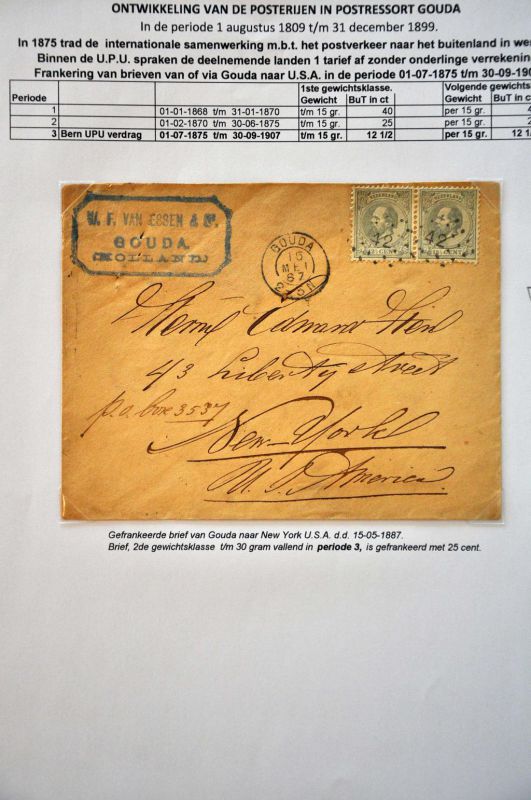 ONTWIKKELING VAN DE POSTERIJEN IN POSTRESSORT GOUDA
In de periode 1 augustus 1809 t/m 31 december 1899.
In 1875 trad de internationale samenwerking m.b.t. het postverkeer naar het buitenland in we
Binnen de U.P.U. spraken de deelnemende landen 1 tarief af zonder onderlinge verrekenin
Frankering van brieven van of via Gouda naar U.S.A. in de periode 01-07-1875 t/m 30-09-190
1ste gewichtsklasse. Volgende gewichts
Periode Gewicht BuT in ct Gewicht BuT in
1 01-01-1868 t/m 31-01-1870 t/m 15 gr. 40 per 15 gr. 4
2 01-02-1870 t/m 30-06-1875 t/m 15 gr. 25 per 15 gr. 2
3 Bern UPU verdrag 01-07-1875 t/m 30-09-1907 t/m 15 gr. 12 1/2 per 15 gr. 12 1
W. F. VAN ESSEN & Co.
GOUDA
(HOLLAND)
GOUDA
15
MEI
87
NEDERLAND
NEDERLAND
42
42
CENT
CENT
Edward
43 Liberty street
p.o. box 3537
New-York
U. S. America
Gefrankeerde brief van Gouda naar New York U.S.A. d.d. 15-05-1887.
Brief, 2de gewichtsklasse t/m 30 gram vallend in periode 3, is gefrankeerd met 25 cent.